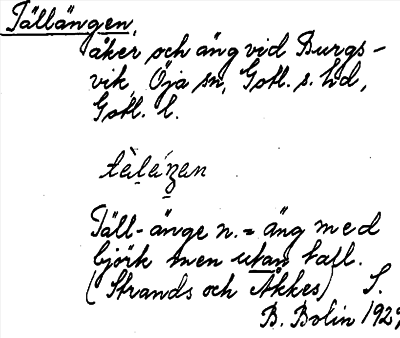 Tällängen,
åker och äng vid Burgs-
vik, Öja sn, Gotl. s. hd,
Gotl. l.
Täll-änge n. = äng med
björk men utan tall.
(Strands och Åkkes) S.
B. Bolin 1927